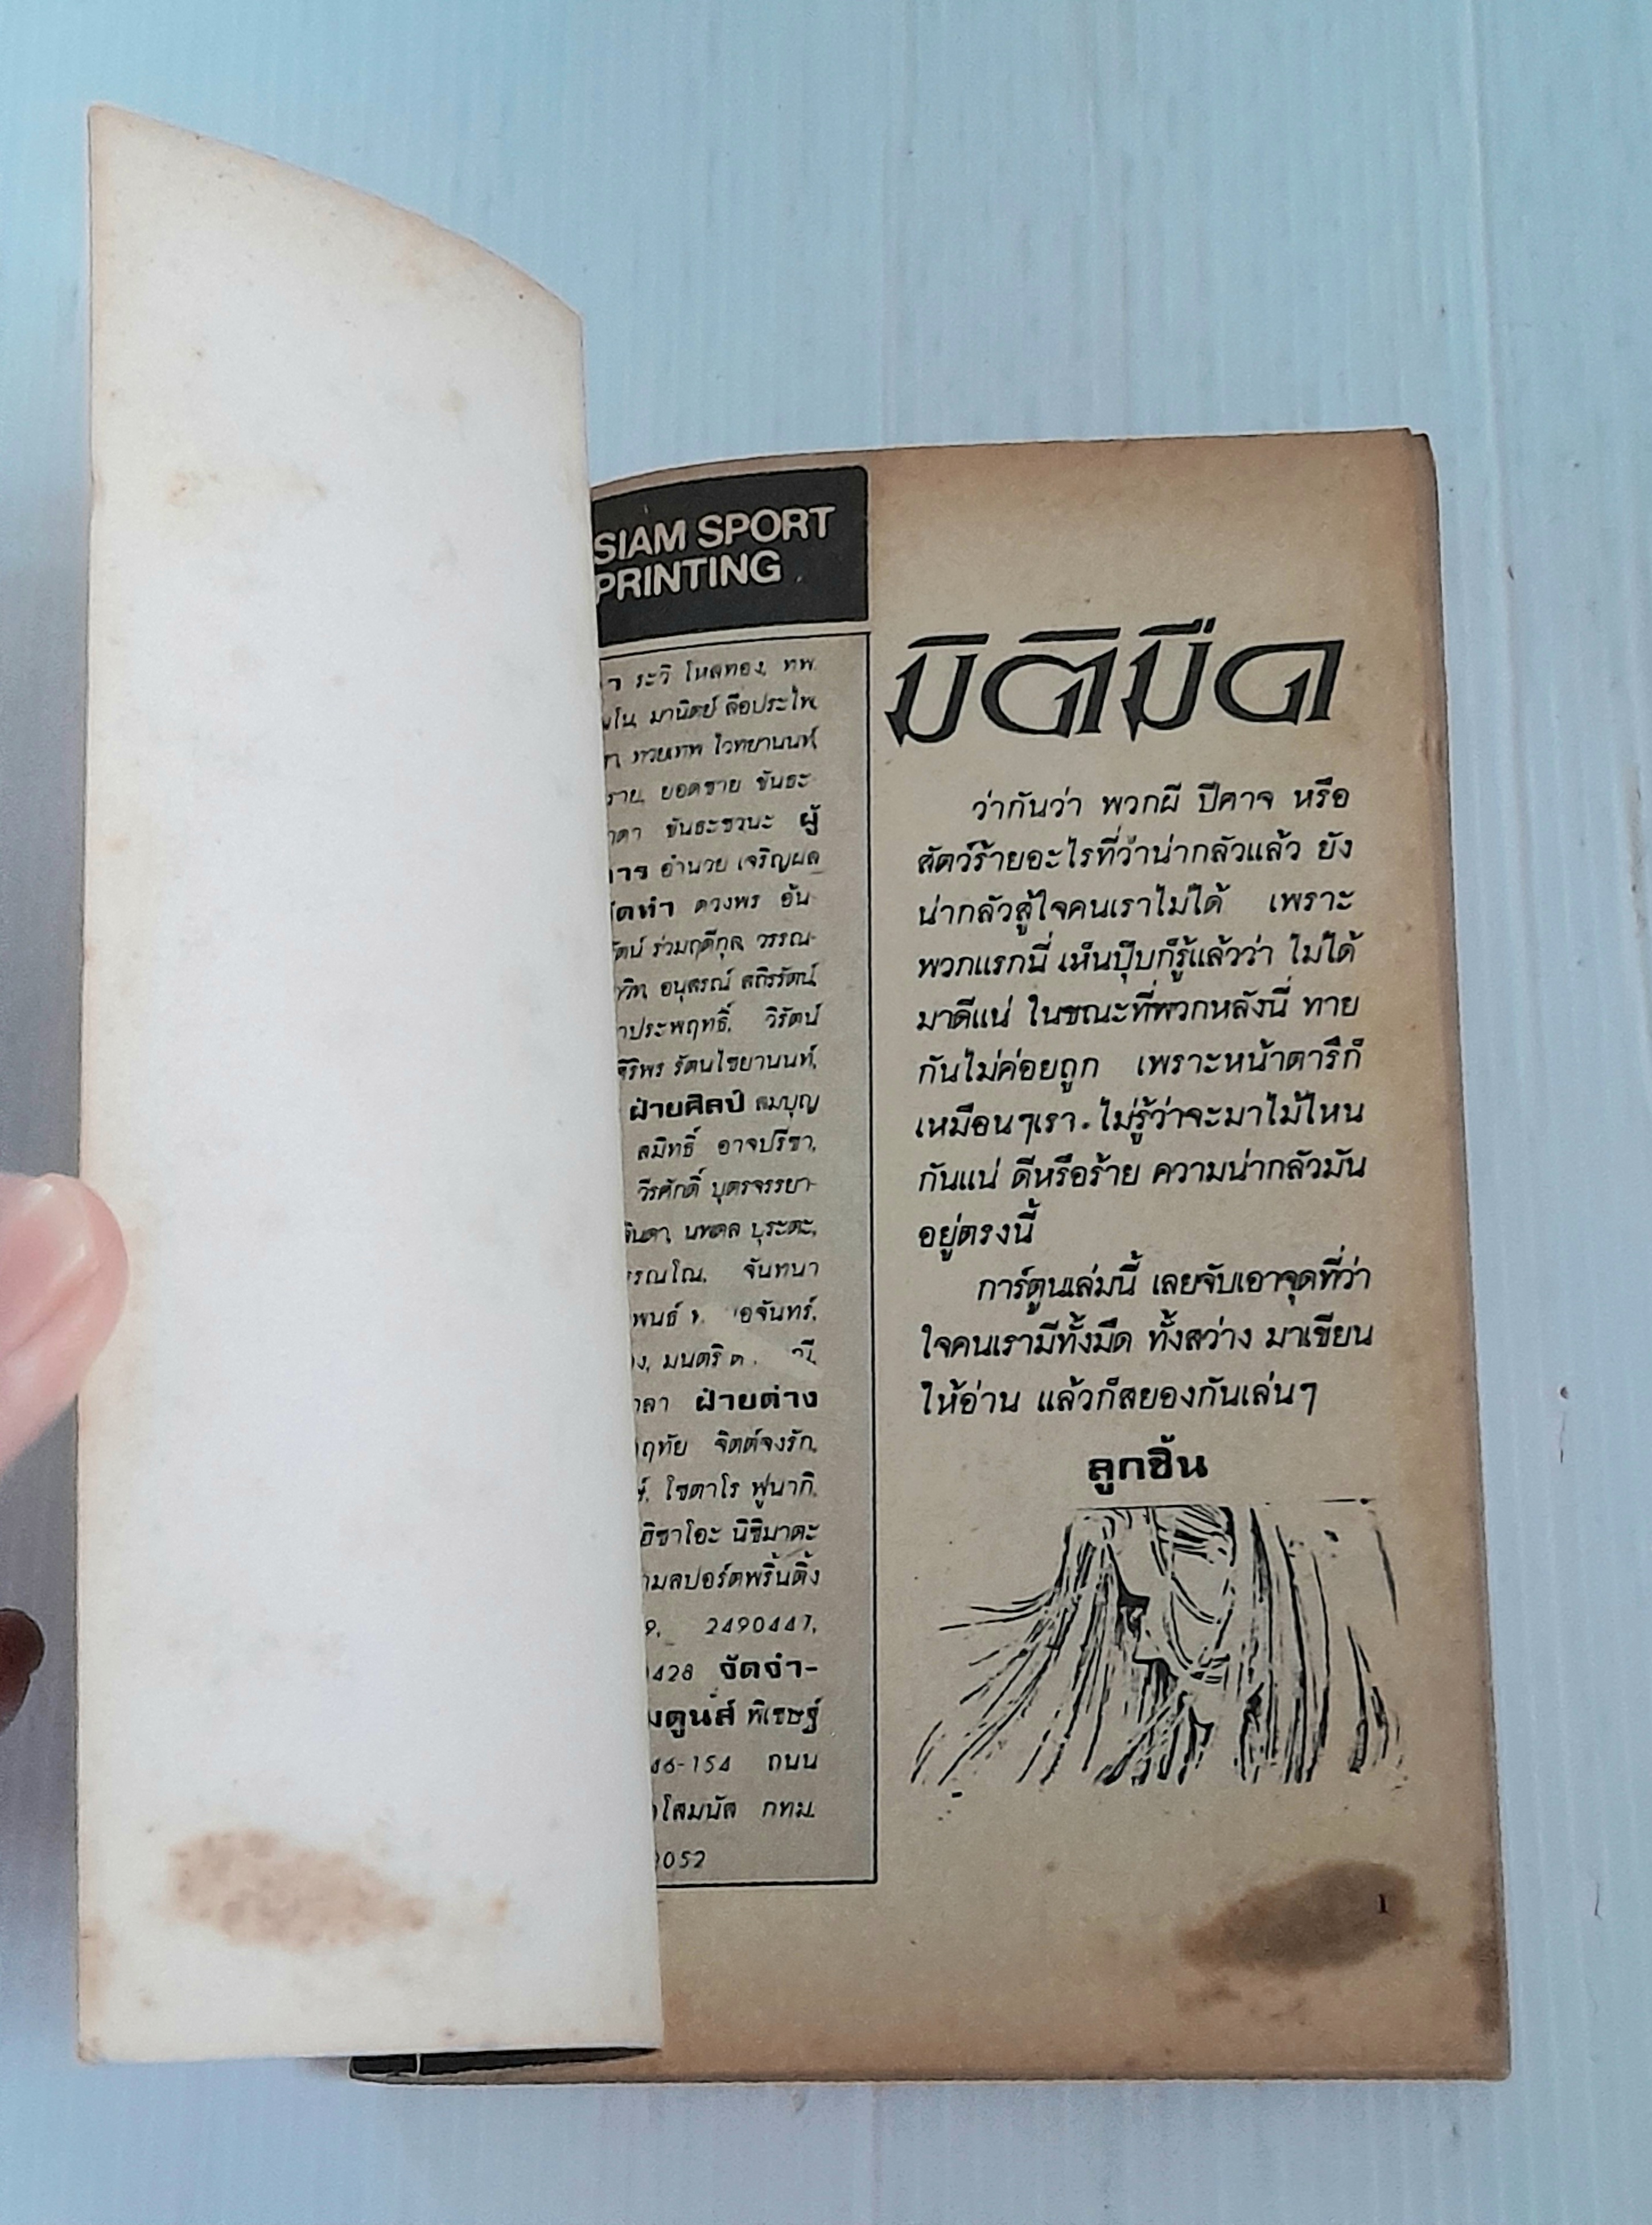 SIAM SPORT
PRINTING
ระวิ โหลทอง, ทพ.
มานิตย์ ลือประไพ
ไวทยานนท์,
ยอดชาย ขันธะ-
ขันธะชวนะ ผู้
อำนวย เจริญผล
ดวงพร อ้น-
ร่วมฤดีกูล, วรรณ-
อนุสรณ์ สถิรรัตน์,
วิรัตน์
รัตนไชยานนท์,
ฝ่ายศิลป์ สมบุญ
สมิทธิ์ อาจปรีชา,
วีรศักดิ์ บุตรจรรยา-
นพดล บุระตะ,
จันทนา
มนตรี
ฝ่ายต่าง
จิตต์จงรัก,
โชตาโร ฟูนากิ,
ฮิซาโอะ นิชิมาตะ
2490447,
จัดจำ-
พิเชษฐ์
46-154 ถนน
โสมนัส กทม.
มิติมืด
ว่ากันว่า พวกผี ปีศาจ หรือ
สัตว์ร้ายอะไรที่ว่าน่ากลัวแล้ว ยัง
น่ากลัวสู้ใจคนเราไม่ได้ เพราะ
พวกแรกนี่ เห็นปุ๊บก็รู้แล้วว่า ไม่ได้
มาดีแน่ ในขณะที่พวกหลังนี่ ทาย
กันไม่ค่อยถูก เพราะหน้าตารึก็
เหมือนๆเรา. ไม่รู้ว่าจะมาไม้ไหน
กันแน่ ดีหรือร้าย ความน่ากลัวมัน
อยู่ตรงนี้
การ์ตูนเล่มนี้ เลยจับเอาจุดที่ว่า
ใจคนเรามีทั้งมืด ทั้งสว่าง มาเขียน
ให้อ่าน แล้วก็สยองกันเล่นๆ
ลูกชิ้น
1